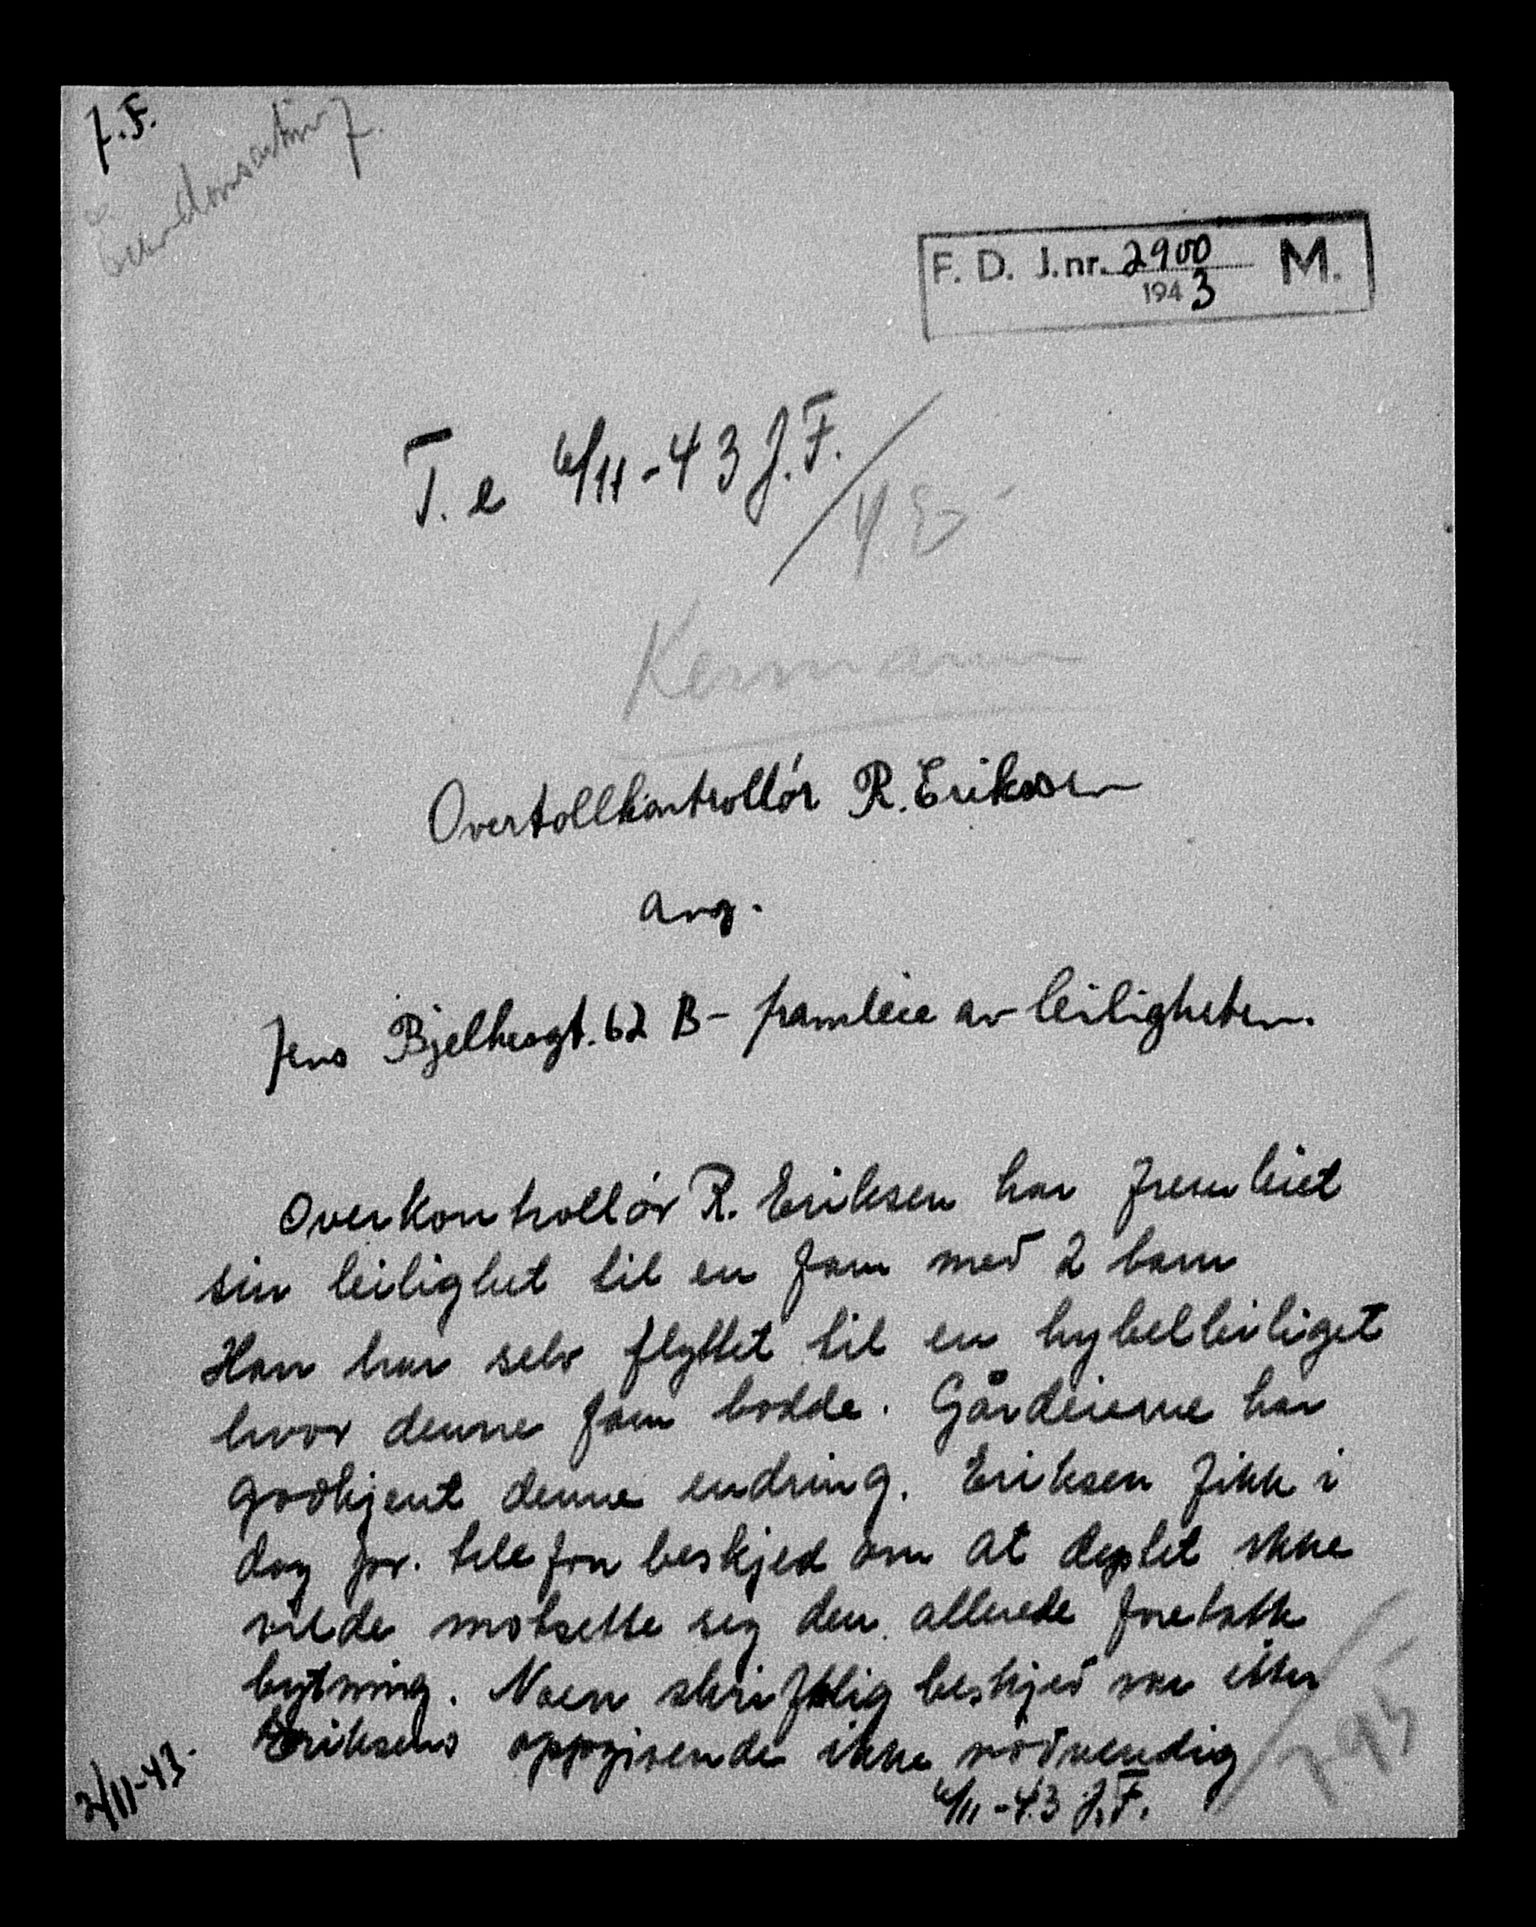 J.F.
F. D. J.nr. 2900 M.
1943
T. e 6/11-43 J.F.
Overtollkontrollör R. Eriksen
ang.
Jens Bjelkesgt. 62 B - framleie av leiligheten.
Overkontrollör R. Eriksen har fremleiet
sin leilighet til en fam med 2 barn
Han har selv flyttet til en hybelleiliget
hvor denne fam bodde. Gårdeierne har
godkjent denne endring. Eriksen fikk i
dag pr. telefon beskjed om at deptet ikke
vilde motsette seg den allerede foretatte
bytning. Noen skriftlig beskjed var etter
Eriksens oppgivende ikke nödvendig
6/11-43 J.F.
2/11-43.